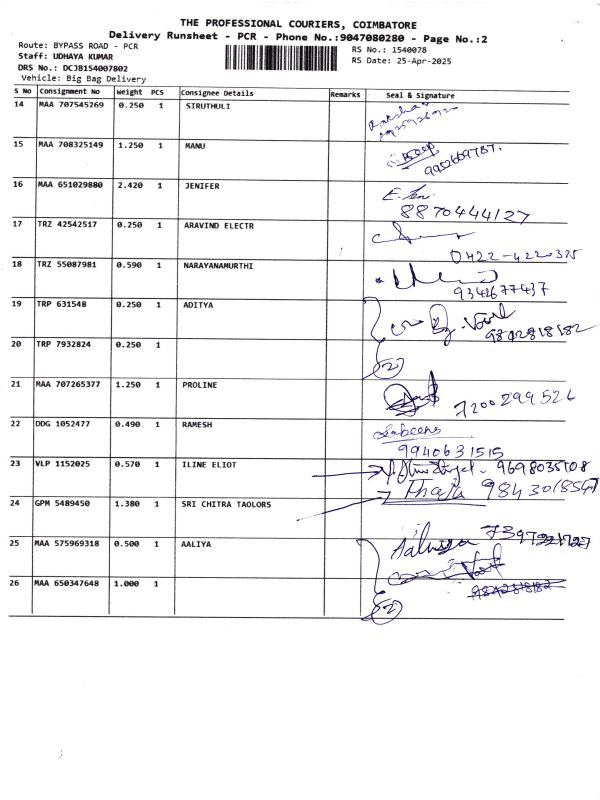 THE PROFESSIONAL COURIERS, COIMBATORE
Delivery Runsheet - PCR - Phone No.:9047080280 - Page No.:2
Route: BYPASS ROAD - PCR
RS No.: 1540078
Staff: UDHAYA KUMAR
RS Date: 25-Apr-2025
DRS No.: DCJB154007802
Vehicle: Big Bag Delivery
S No Consignment No Weight PCS Consignee Details Remarks Seal & Signature
14 MAA 707545269 0.250 1 SIRUTHULI
15 MAA 708325149 1.250 1 MANU
9952669787.
16 MAA 651029880 2.420 1 JENIFER
8870444127
17 TRZ 42542517 0.250 1 ARAVIND ELECTR
0422-4220325
18 TRZ 55087981 0.590 1 NARAYANAMURTHI
9342677437
19 TRP 631548 0.250 1 ADITYA
9842818182
20 TRP 7932824 0.250 1
2
21 MAA 707265377 1.250 1 PROLINE
7200299526
22 DDG 1052477 0.490 1 RAMESH
9940631515
23 VLP 1152025 0.570 1 ILINE ELIOT
9698035108
24 GPM 5489450 1.380 1 SRI CHITRA TAOLORS
25 MAA 575969318 0.500 1 AALIYA
26 MAA 650347648 1.000 1
2